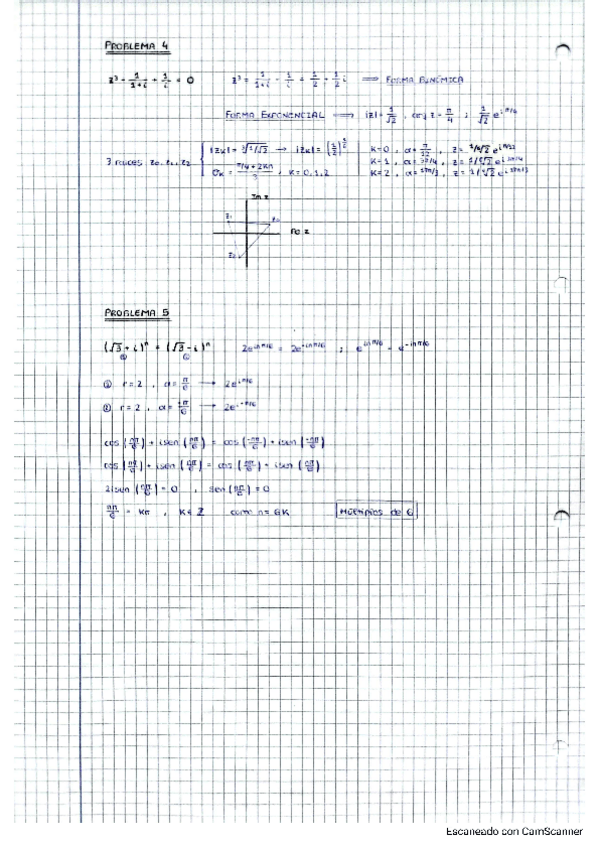 PROBLEMA 4
z³ - 1/(1+i) + 1/i = 0    z³ = 1/(1+i) - 1/i = 1/2 + 1/2 i ⟹ FORMA BINÓMICA
FORMA EXPONENCIAL ⟹ |z| = 1/√2 , arg z = π/4 ; 1/√2 e^(iπ/4)
3 raíces z₀, z₁, z₂
|zk| = ∛(1/√2) → |zk| =
k=0 , α = π/12 , z =
σk = (π/4 + 2kπ)/3 , k = 0,1,2
k=1 , α = 3π/4 , z =
k=2 , α =
Im z
z₁
Re z
z₂
PROBLEMA 5
(√3 + i)ⁿ = (√3 - i)ⁿ    2e^(inπ/6) = 2e^(-inπ/6) ; e^(inπ/6) = e^(-inπ/6)
① ②
① r = 2 , α = π/6 → 2e^(iπ/6)
② r = 2 , α = -π/6 → 2e^(-iπ/6)
cos (nπ/6) + isen (nπ/6) = cos (-nπ/6) + isen (-nπ/6)
cos (nπ/6) + isen (nπ/6) = cos (nπ/6) - isen (nπ/6)
2isen (nπ/6) = 0 , sen (nπ/6) = 0
nπ/6 = kπ , k ∈ Z    como n = 6k    Múltiplos de 6
Escaneado con CamScanner